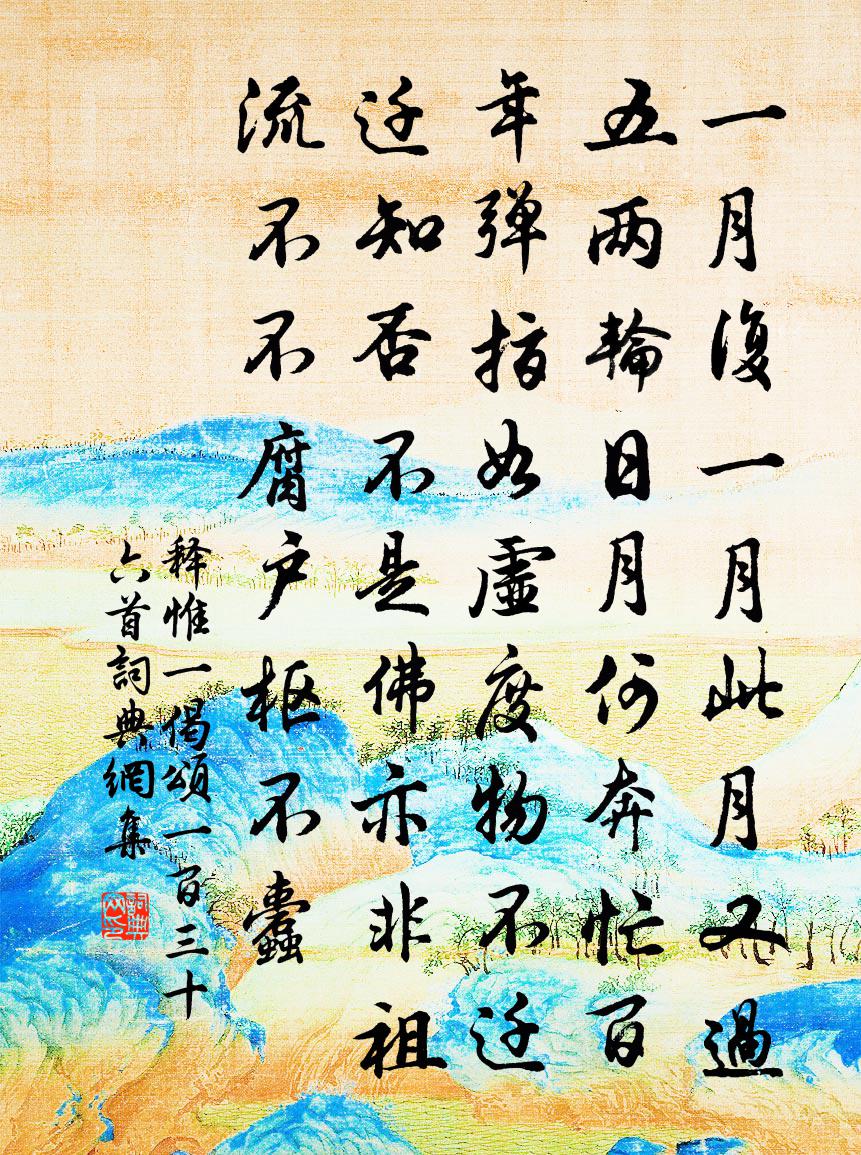 一月復一月此月又過
五两輪日月何奔忙百
年弹指如虛度物不迁
迁知否不是佛亦非祖
流不不腐户枢不蠹
释惟一偈頌一百三十
六首詞典網集